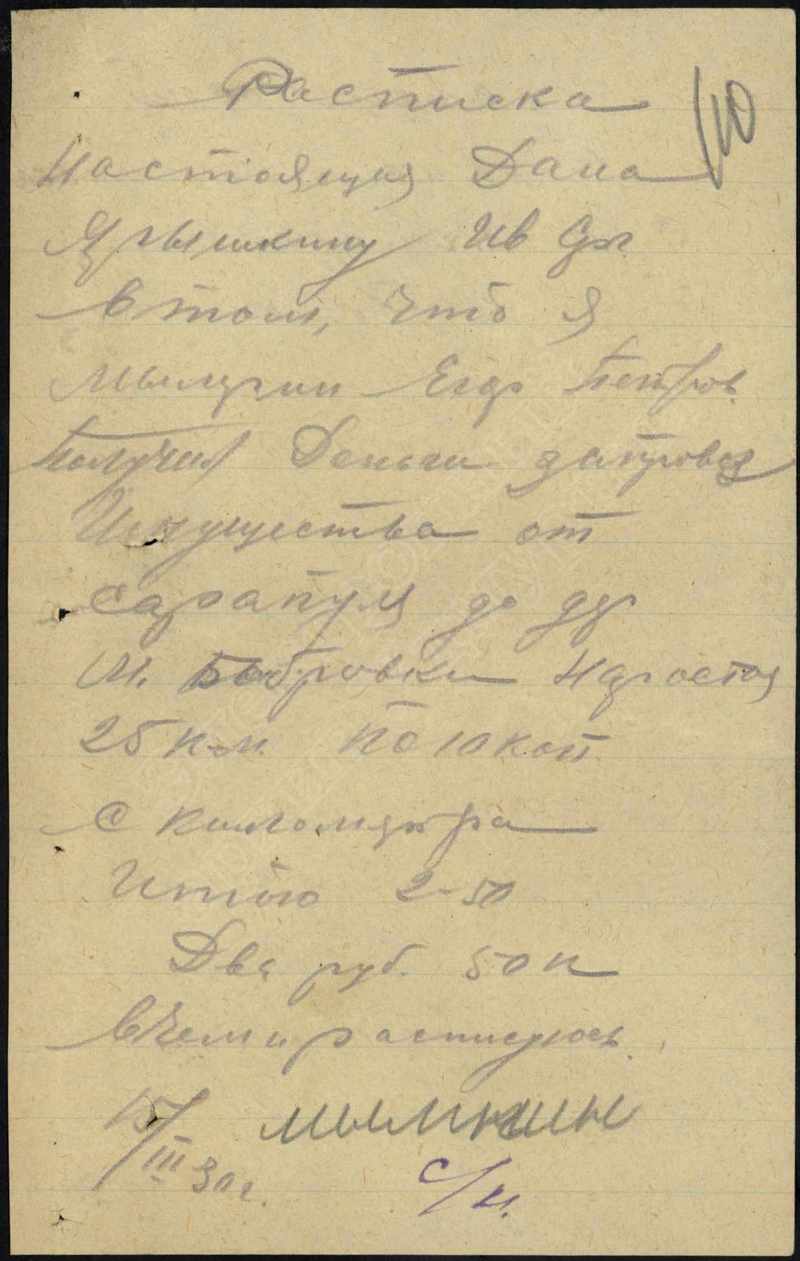 110
Расписка
Настоящая Дана
Ярышкину Ив
в том, что я
Егор Петров.
Получил Деньги запровоз
Имущества от
Сарапуля до
М. Бобровки
25 к-м. по 10 коп
с километра
Итого 2-50
Два руб. 50 к
вчем и расписуюсь.
15/III 30 г. мымнин
с/н.